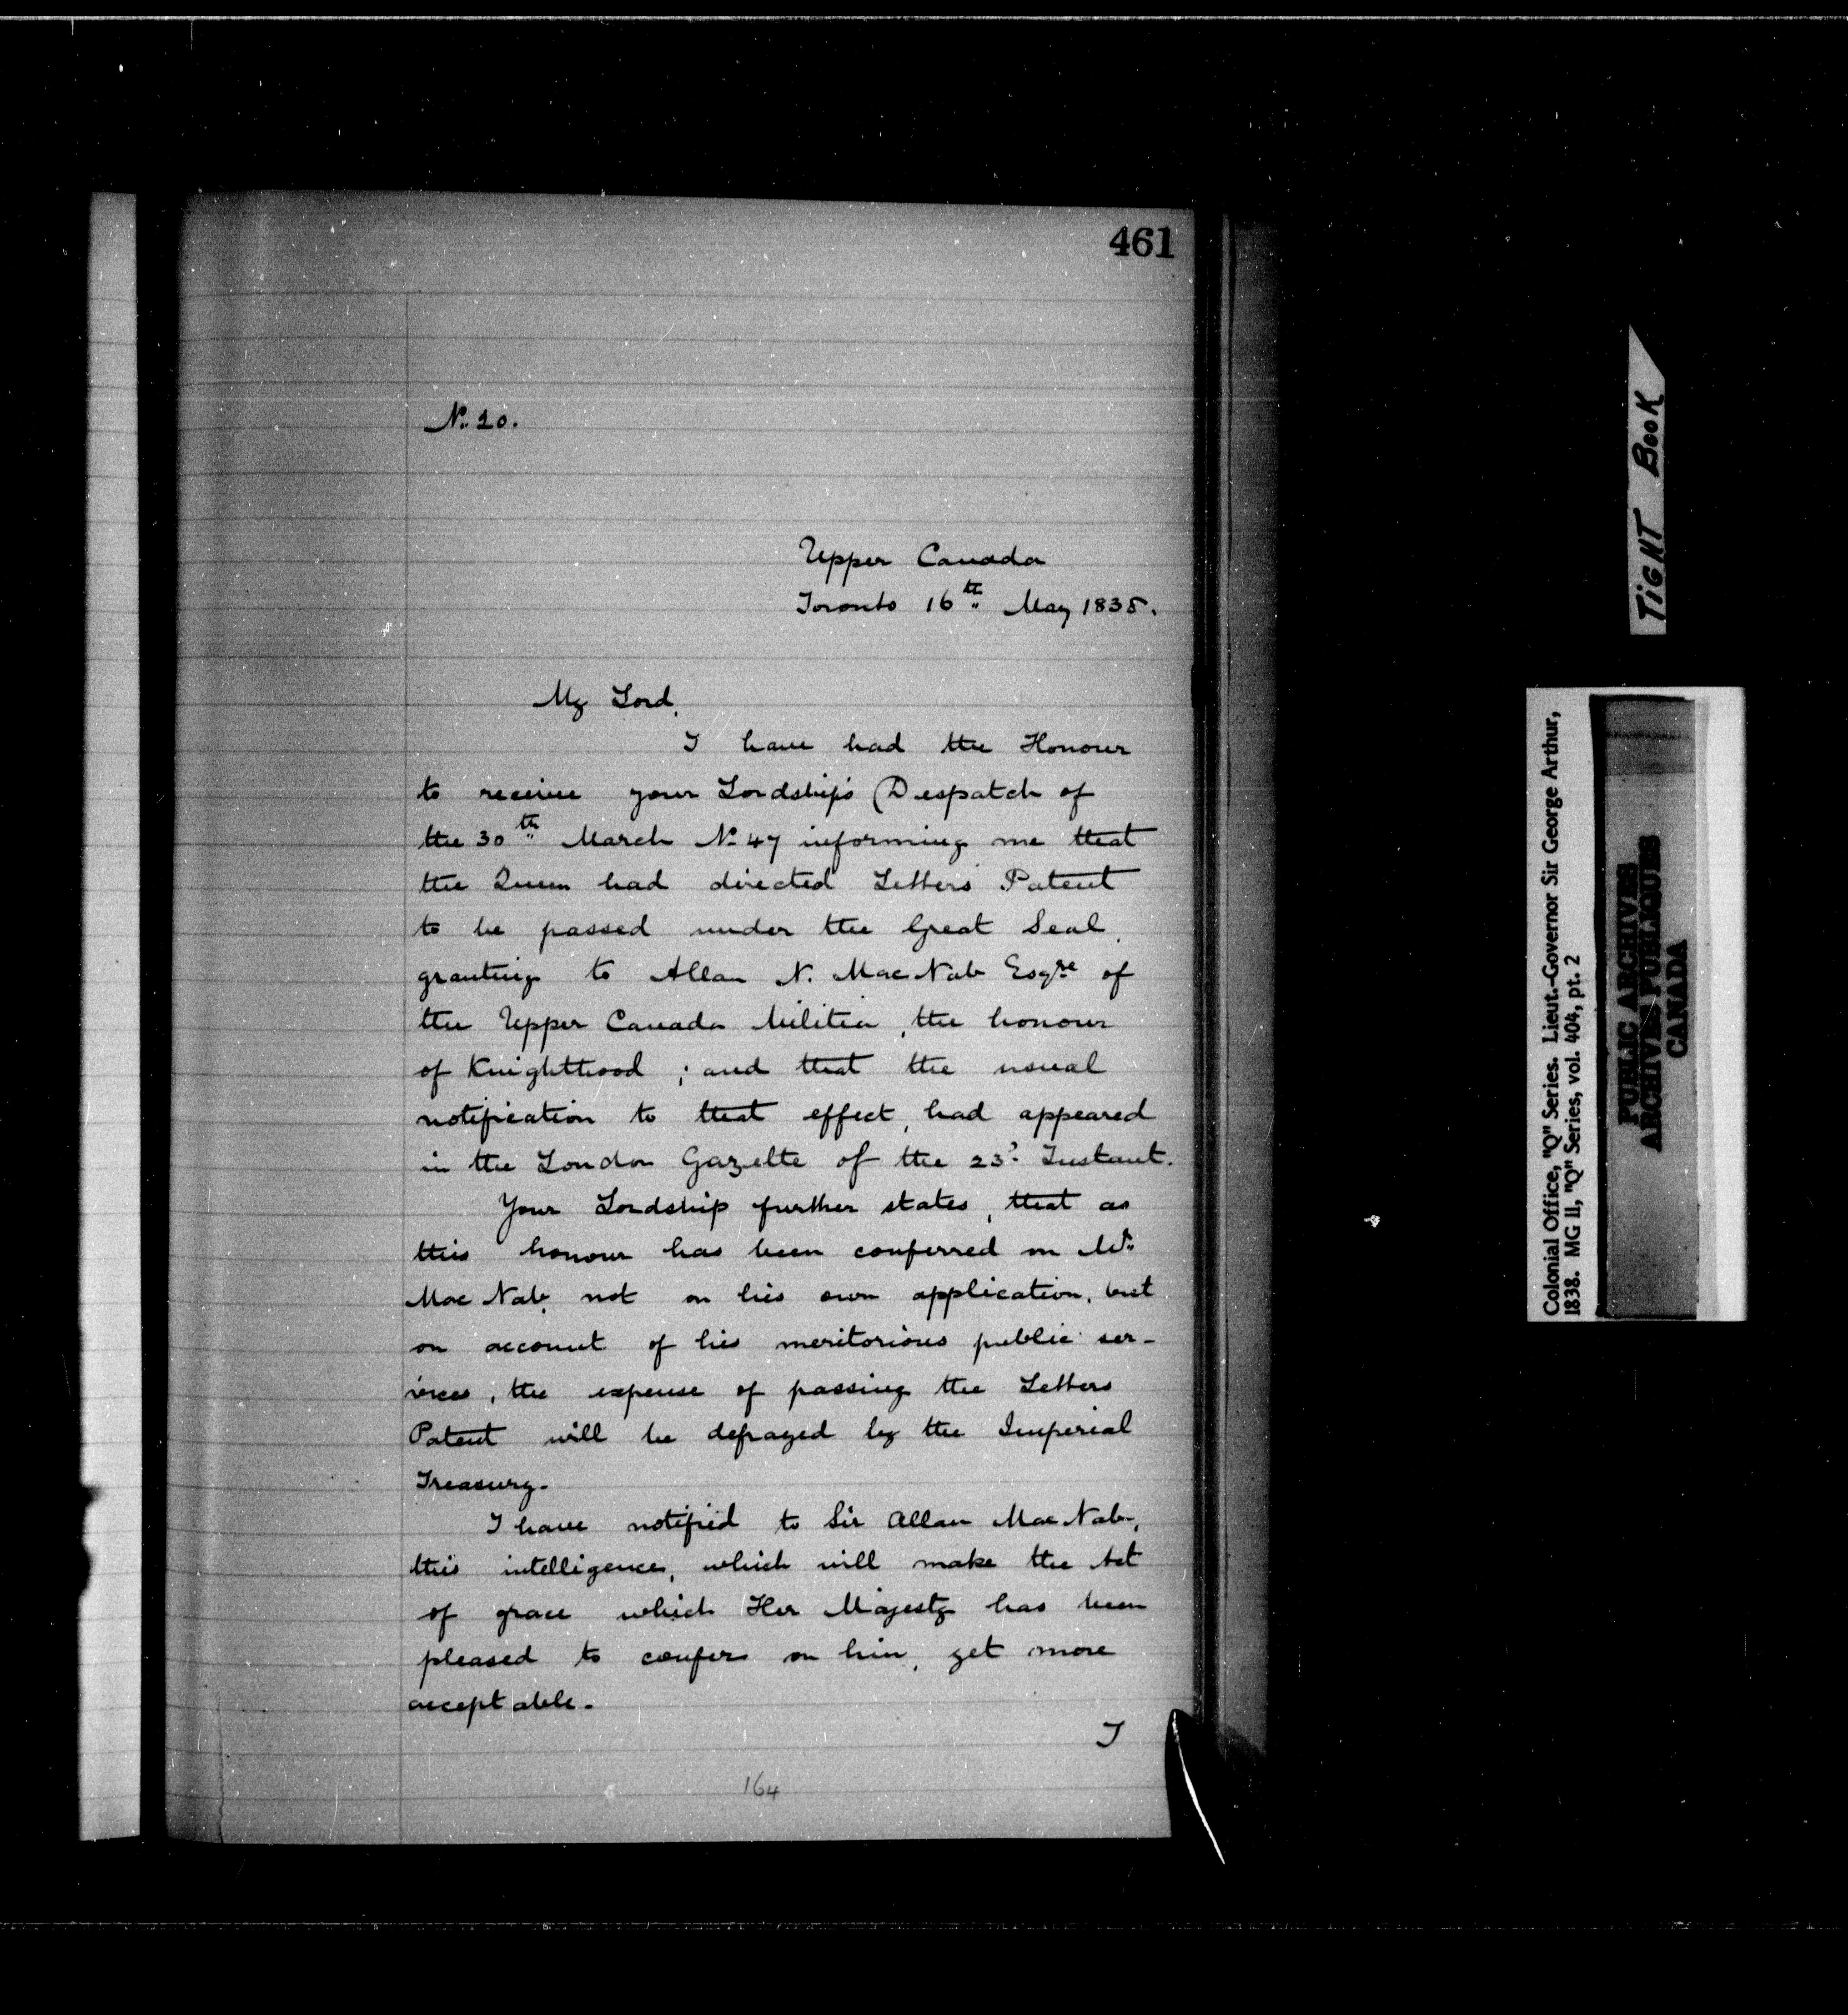 461
No. 20.
Upper Canada
Toronto 16th May 1838.
My Lord,
I have had the Honour
to receive your Lordship's Despatch of
the 30th March No 47 informing me that
the Queen had directed Letters Patent
to be passed under the Great Seal,
granting to Allan N. MacNab Esqre of
the Upper Canada Militia, the honour
of Knighthood; and that the usual
notification to that effect, had appeared
in the London Gazette of the 23d. Instant.
Your Lordship further states, that as
this honour has been conferred on Mr.
MacNab, not on his own application, but
on account of his meritorious public ser-
vices, the expense of passing the Letters
Patent will be defrayed by the Imperial
Treasury.
I have notified to Sir Allan MacNab,
this intelligence, which will make the Act
of grace which Her Majesty has been
pleased to confer on him, yet more
acceptable.
I
164
TIGHT BOOK
Colonial Office, "Q" Series. Lieut.-Governor Sir George Arthur,
1838. MG 11, "Q" Series, vol. 404, pt. 2
PUBLIC ARCHIVES
ARCHIVES PUBLIQUES
CANADA